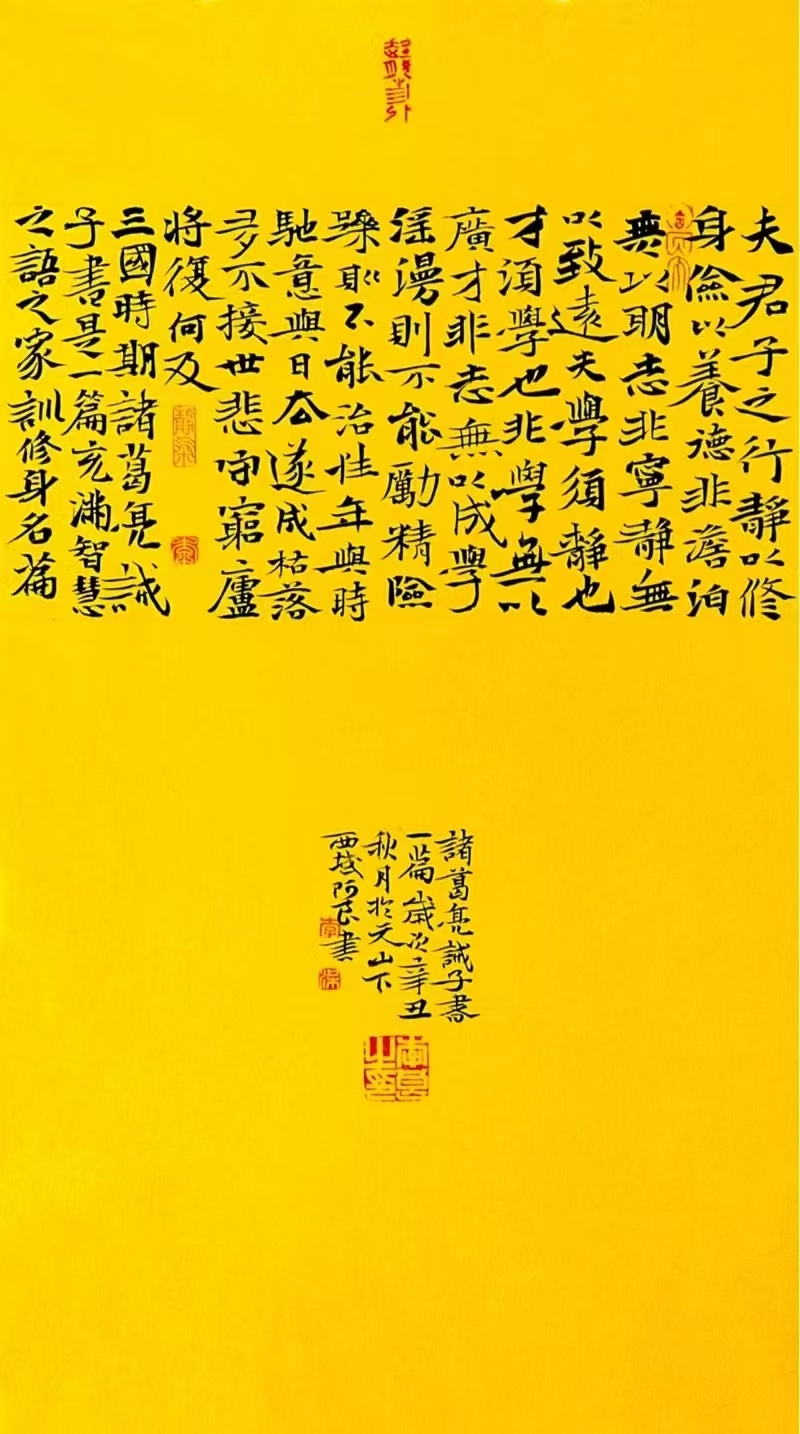 夫君子之行靜以修
身儉以養德非澹泊
無以明志非寧靜無
以致遠夫學須靜也
才須學也非學無以
廣才非志無以成學
淫漫則不能勵精險
躁則不能治性年與時
馳意與日去遂成枯落
多不接世悲守窮廬
將復何及
三國時期諸葛亮誡
子書是一篇充滿智慧
之語之家訓修身名篇
諸葛亮誡子書
一篇歲次辛丑
秋月於天山下
西域阿良書